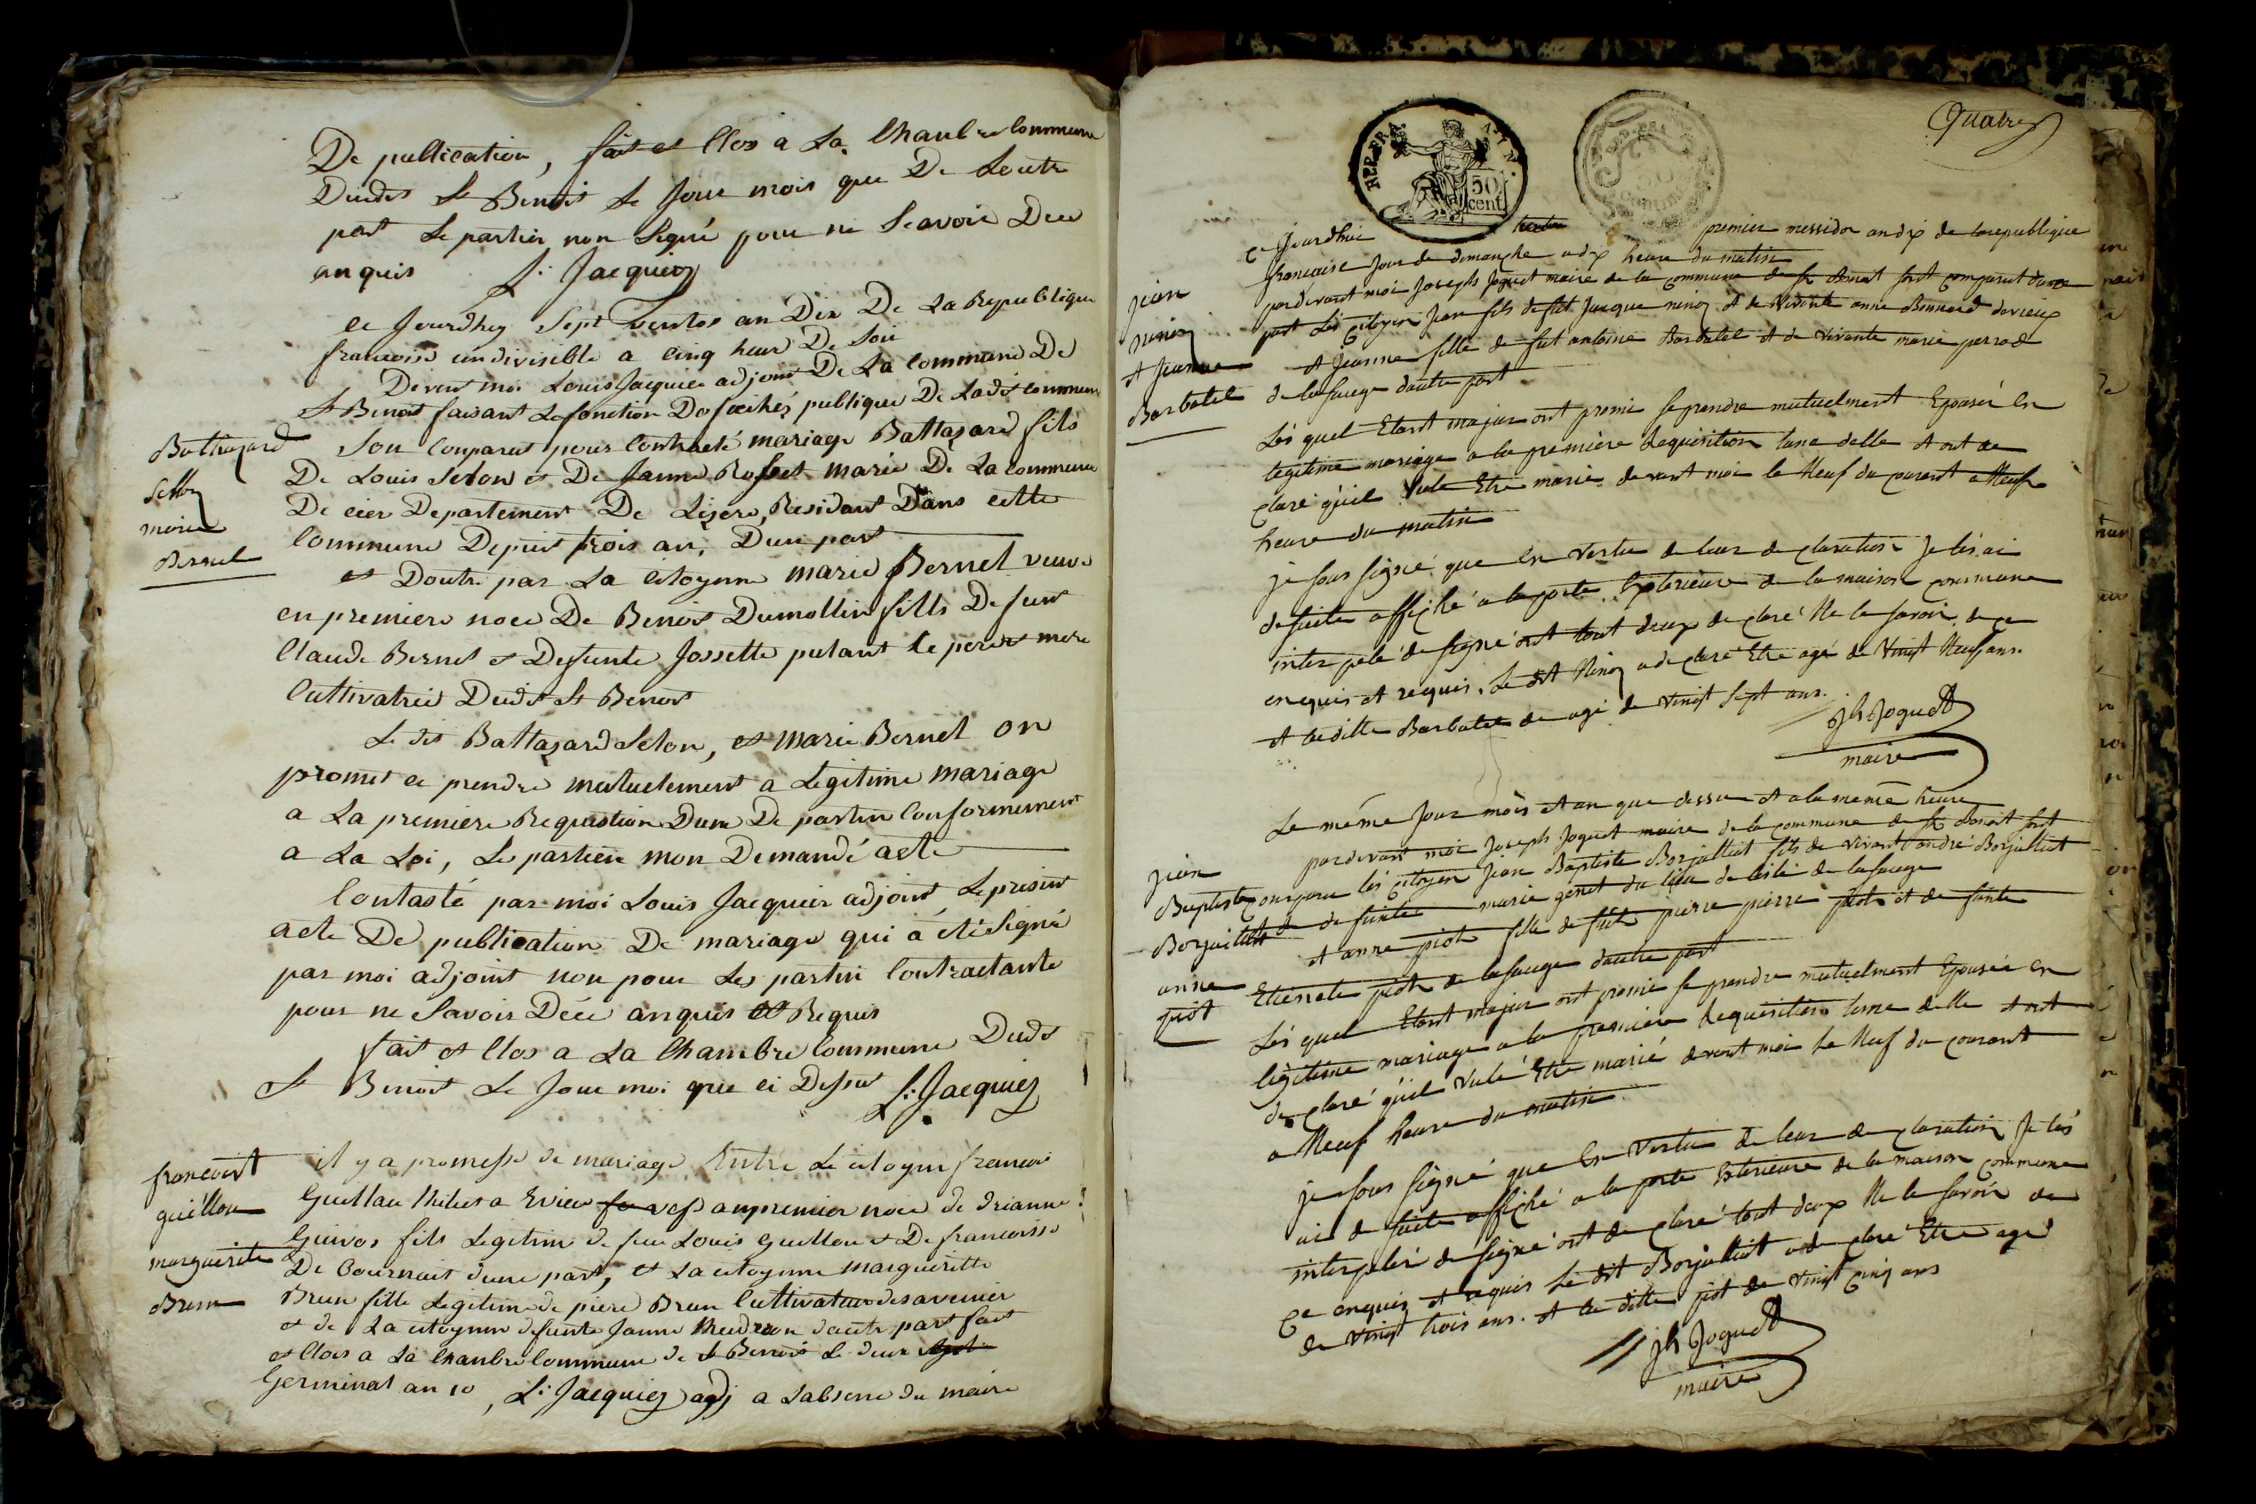 De publication, fait et Clos a La Chanbre Commune
Dudit St Benoit Le Jour mois que De Loutre
part Le partier non Signé pour ne Scavoir Dee
anquis L: Jacquier
Ce Jourdhuy Sept Ventos an Dix De La Republique
francoise un divisible a Cinq heur De Soir
Devent moi Louis Jacquier adjoint De La Commune De
St Benoit faisant Lafonction publique De Ladit Commune
Balthazard
Setton
marie
Bernel
Son Conparut pour Contracté mariage Baltazard fils
De Louis Seton et De Janne Rosset marie De La Commune
De cier Departement De Lizere, Residant Dans cette
Commune Depuit trois an, Dune part
et Doutre par La Citoyenne marie Bernel veuve
en premiere noce De Benoit Dumollin fille De funt
Claude Bernel et Defunte Jossette putant le pere et mere
Cultivatrice Dudit St Benoit
Le dit Baltazard Seton, et marie Bernel on
promet ce prendre mutuelement a Legitime mariage
a La premiere Requistion Dune De partin Conformement
a La Loi, Le partiere mon Demandé acte
Contasté par moi Louis Jacquier adjoint Le present
acte De publication De mariage qui a été Signé
par moi adjoint non pour Les partin Contractante
pour ne Savoir Dée anquis et Requis
fait et Clos a La Chambre Commune Dudt
St Benoit Le Jour moi que ci Dessus L: Jacquier
francoist
guéllou
marguerite
Brun
il y a promesse de mariage Entre Le citoyen francois
Guellau a vef anpremier noce de drianne
Guivos fils Legitime de feu Louis guellou et De francoisse
De Cournait dune part, et La citoyenne margueritte
Brun fille Legitime de piere Brun Cultivateur des avenier
et de La citoyenne defunte Janne dautre part fait
et Clos a La Chanbre Commune de St Benoit Le deux
Germinal an 10, L: Jacquier adj a Labsence du maire
Quatre
REP. FRA.
50
cent
Ce Jourdhui premier messidor an dix de la republique
francaise Jour de dimanche a dix heure du matin
jean
ninoz
et jeanne
Barbatel
pardevant moi Joseph Joguet maire de la commune de St Benoit sont comparut dune
part Lés Citoyen Jean fils de fut Jacque ninoz et de vivante anne Bonnard devieux
et Jeanne fille de fut antoine Barbatel et de vivante marie perrod
de lasauge dautre part
Lés quel Etant majeur ont promi se prendre mutuelment Epouser En
legitime mariage a la première Requisition lune delle et ont de
claré quil vule Etre marié devant moi le Neuf du courant a Neuf
heure du matin
je sous signé que En vertu de leur declaration Je lés ai
de suite affiché a la porte Exterieure de la maison commune
interpelé de signé ont tout deux declaré Ne le savoir de ce
enquis et requis. Le dit Ninoz a declaré Etre agé de vinst Neuf ans.
et la ditte Barbatel de agé de vinst sept ans.
jh Joguet
maire
Le même Jour mois et an que dessu et a la meme heure
jean
Baptiste
Borjaillat
anne
piot
pardevant moi Joseph Joguet maire de la commune de St Benoit sont
comparu lés Citoyen jean Baptiste Borjalliat fils de vivant andré Borjalliat
et de defunte marie genet du lieu de lasauge
et anne piot fille de fut pierre pierre piot et de funte
Etienete piot de lasauge dautre part
Lés quel Etant majeur ont promis se prendre mutuelment Epouser En
legitime mariage a la premiere Requisition lune delle et ont
declaré quil vule Etre marié devant moi Le Neuf du courant
a Neuf heure du matin
je sous signé que En vertu de leur declaration Je lés
ai de suite affiché a la porte Exterieure de la maison commune
interpelé de signé ont declaré tout deux Ne le savoir de
ce enquis et requis Le dit Borjalliat a declaré Etre agé
de vinst trois ans. et la ditte piot de vinst cinq ans
jh Joguet
maire